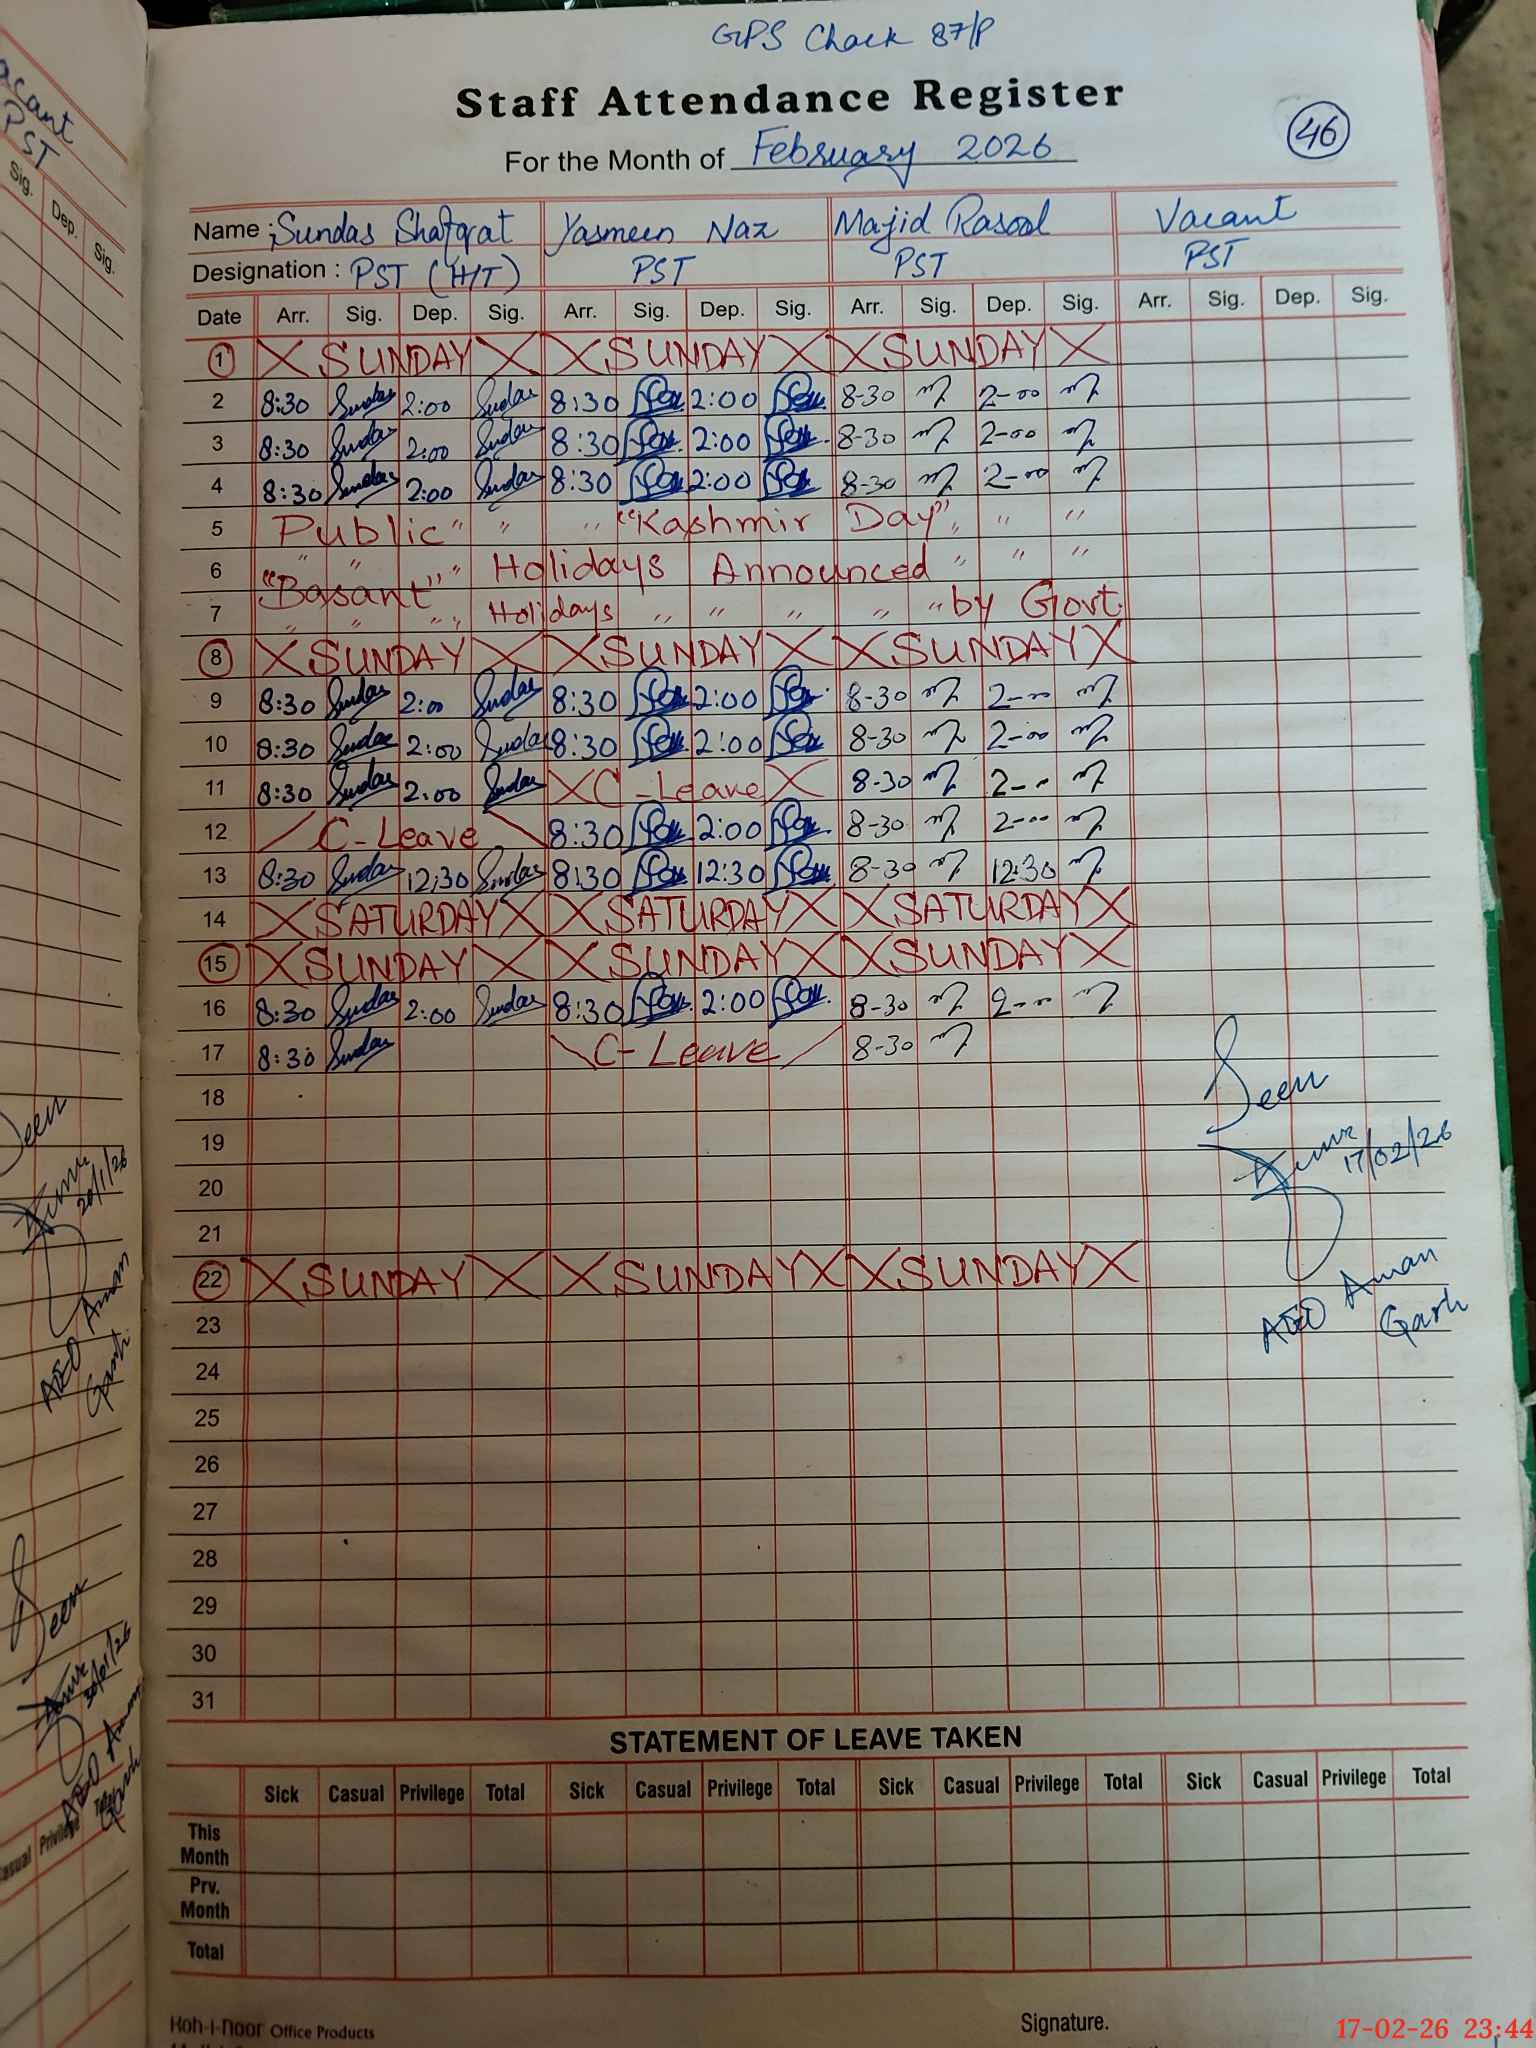 GPS Chack 87/P
Staff Attendance Register
For the Month of February 2026
46
Name : Sundas Shafqat Yasmeen Naz Majid Rasool Vacant
Designation : PST (H/T) PST PST PST
Date Arr. Sig. Dep. Sig. Arr. Sig. Dep. Sig. Arr. Sig. Dep. Sig. Arr. Sig. Dep. Sig.
1 X SUNDAY X X SUNDAY X X SUNDAY X
2 8:30 Sundas 2:00 Sundas 8:30 2:00 8-30 2-00
3 8:30 Sundas 2:00 Sundas 8:30 2:00 8-30 2-00
4 8:30 Sundas 2:00 Sundas 8:30 2:00 8-30 2-00
5 Public " " " "Kashmir Day" " "
6 " " " Holidays Announced " " "
7 "Basant" " Holidays " " " " " by Govt.
8 X SUNDAY X X SUNDAY X X SUNDAY X
9 8:30 Sundas 2:00 Sundas 8:30 2:00 8-30 2-00
10 8:30 Sundas 2:00 Sundas 8:30 2:00 8-30 2-00
11 8:30 Sundas 2:00 Sundas X C-Leave X 8-30 2-00
12 / C-Leave \ 8:30 2:00 8-30 2-00
13 8:30 Sundas 12:30 Sundas 8:30 12:30 8-30 12:30
14 X SATURDAY X X SATURDAY X X SATURDAY X
15 X SUNDAY X X SUNDAY X X SUNDAY X
16 8:30 Sundas 2:00 Sundas 8:30 2:00 8-30 2-00
17 8:30 Sundas \ C-Leave / 8-30
18
19
20
21
22 X SUNDAY X X SUNDAY X X SUNDAY X
23
24
25
26
27
28
29
30
31
Seen
17/02/26
AEO Aman
Garh
STATEMENT OF LEAVE TAKEN
Sick Casual Privilege Total Sick Casual Privilege Total Sick Casual Privilege Total Sick Casual Privilege Total
This Month
Prv. Month
Total
Koh-i-noor Office Products
Signature.
17-02-26 23:44
PST
Sig. Dep. Sig.
Seen
20/1/26
AEO Aman
Garh
Seen
30/01/26
AEO Aman
Garh
Privilege